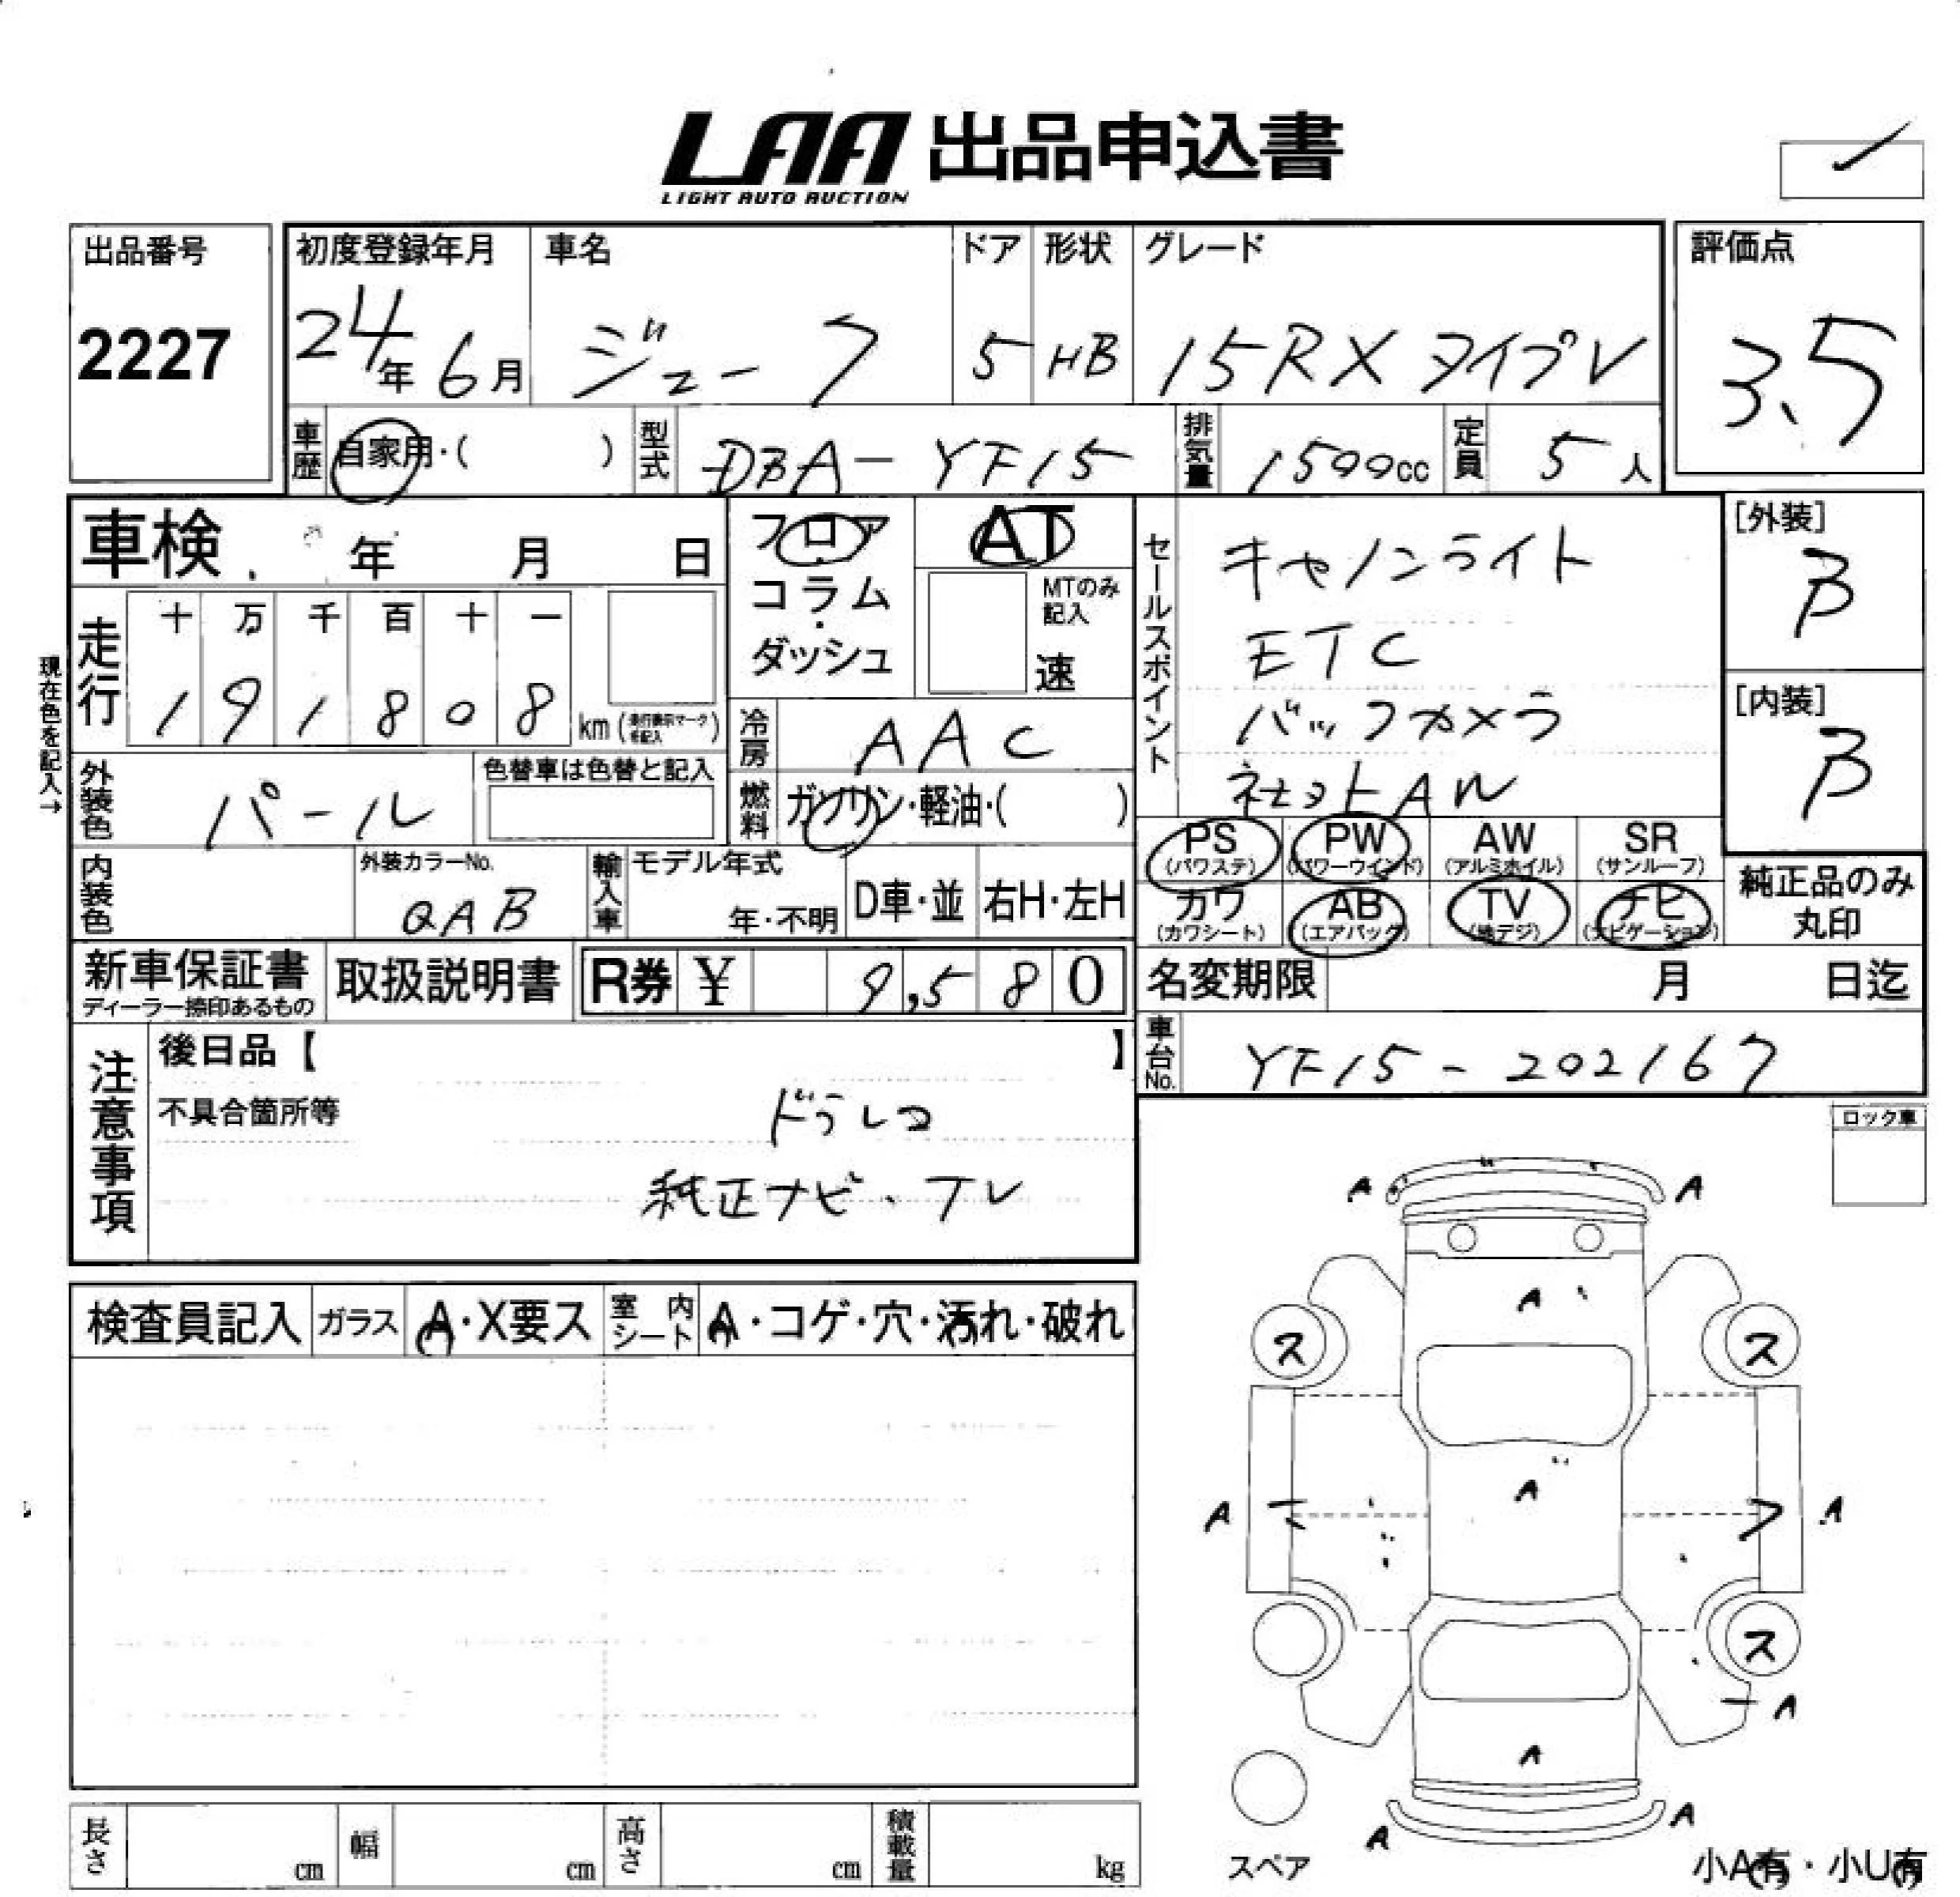 LAA 出品申込書
LIGHT AUTO AUCTION
出品番号
2227
初度登録年月
24年 6月
車名
ジューク
ドア
5
形状
HB
グレード
15RX タイプV
評価点
3.5
車歴 自家用・( )
型式 DBA-YF15
排気量 1500cc
定員 5人
車検 年 月 日
フロア・コラム・ダッシュ
AT
MTのみ記入
速
現在色を記入→
走行
十 万 千 百 十 一
1 9 1 8 0 8 km
冷房 AAC
燃料 ガソリン・軽油・( )
外装色 パール
色替車は色替と記入
内装色
外装カラーNo.
QAB
輸入車
モデル年式
年・不明
D車・並
右H・左H
セールスポイント
キセノンライト
ETC
バックカメラ
社ヨトAW
[外装]
B
[内装]
B
PS (パワステ)
PW (パワーウインド)
AW (アルミホイル)
SR (サンルーフ)
カワ (カワシート)
AB (エアバッグ)
TV (地デジ)
ナビ (ナビゲーション)
純正品のみ
丸印
新車保証書
ディーラー捺印あるもの
取扱説明書
R券 ¥ 9,580
名変期限 月 日迄
車台No. YF15-202167
注意事項
後日品【 】
不具合箇所等
ドラレコ
純正ナビ、テレ
ロック車
検査員記入
ガラス A・X要ス
室内シート A・コゲ・穴・汚れ・破れ
A A
A
ス ス
A
A A
ス
A
A
A A
スペア
小A有・小U有
長さ cm
幅 cm
高さ cm
積載量 kg